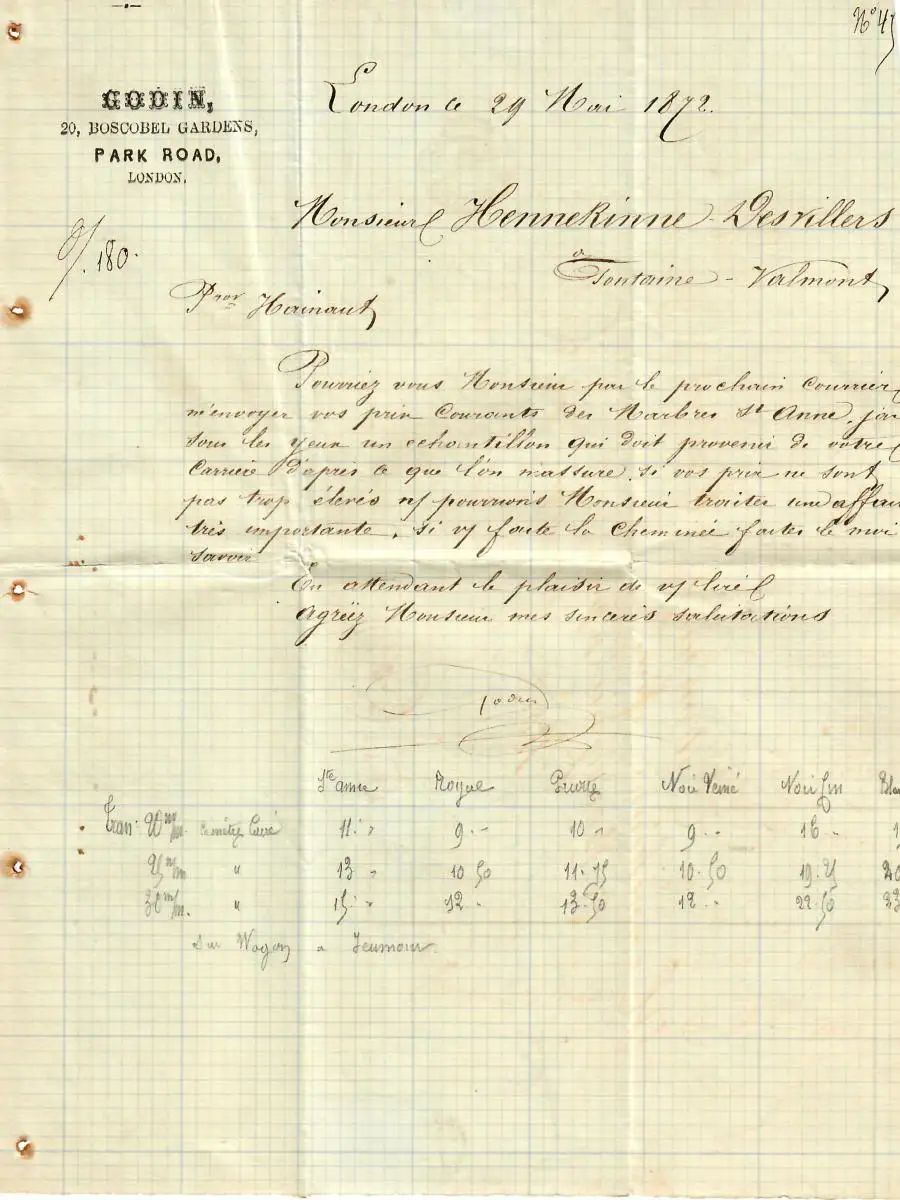 GODIN,
20, BOSCOBEL GARDENS,
PARK ROAD,
LONDON.
London le 29 Mai 1872.
Monsieur Hennekinne - Desvillers
à
Fontaine - Valmont
180.
Pror Hainaut
Pourriez vous Monsieur par le prochain Courrier
m'envoyer vos prix Courants des Marbres St Anne, j'ai
sous les yeux un echantillon qui doit provenir de votre
Carriere d'apres ce que l'on m'assure, si vos prix ne sont
pas trop élevés n/ pourrions Monsieur traiter une affai
très importante, si v/ faite la Cheminée faites le moi
savoir
En attendant le plaisir de v/ lire
Agréez Monsieur mes sincères salutations
Godin
Ste anne Royal Noir Veiné Noir fin
Tran: 20 m/m. carré 11. " 9. " 10 " 9. " 16 "
25 m/m " 13 " 10 50 11.75 10.50 19.25 20
30 m/m. " 15. " 12 " 13.50 12 " 22.50 23
Sur Wagon a Jeumont